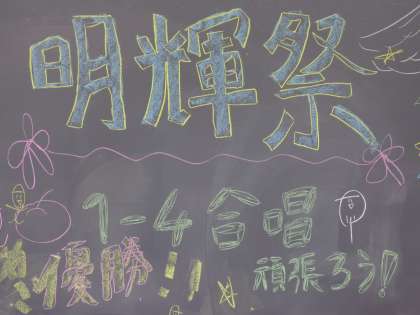 明輝祭
1-4合唱
優勝!!
頑張ろう!